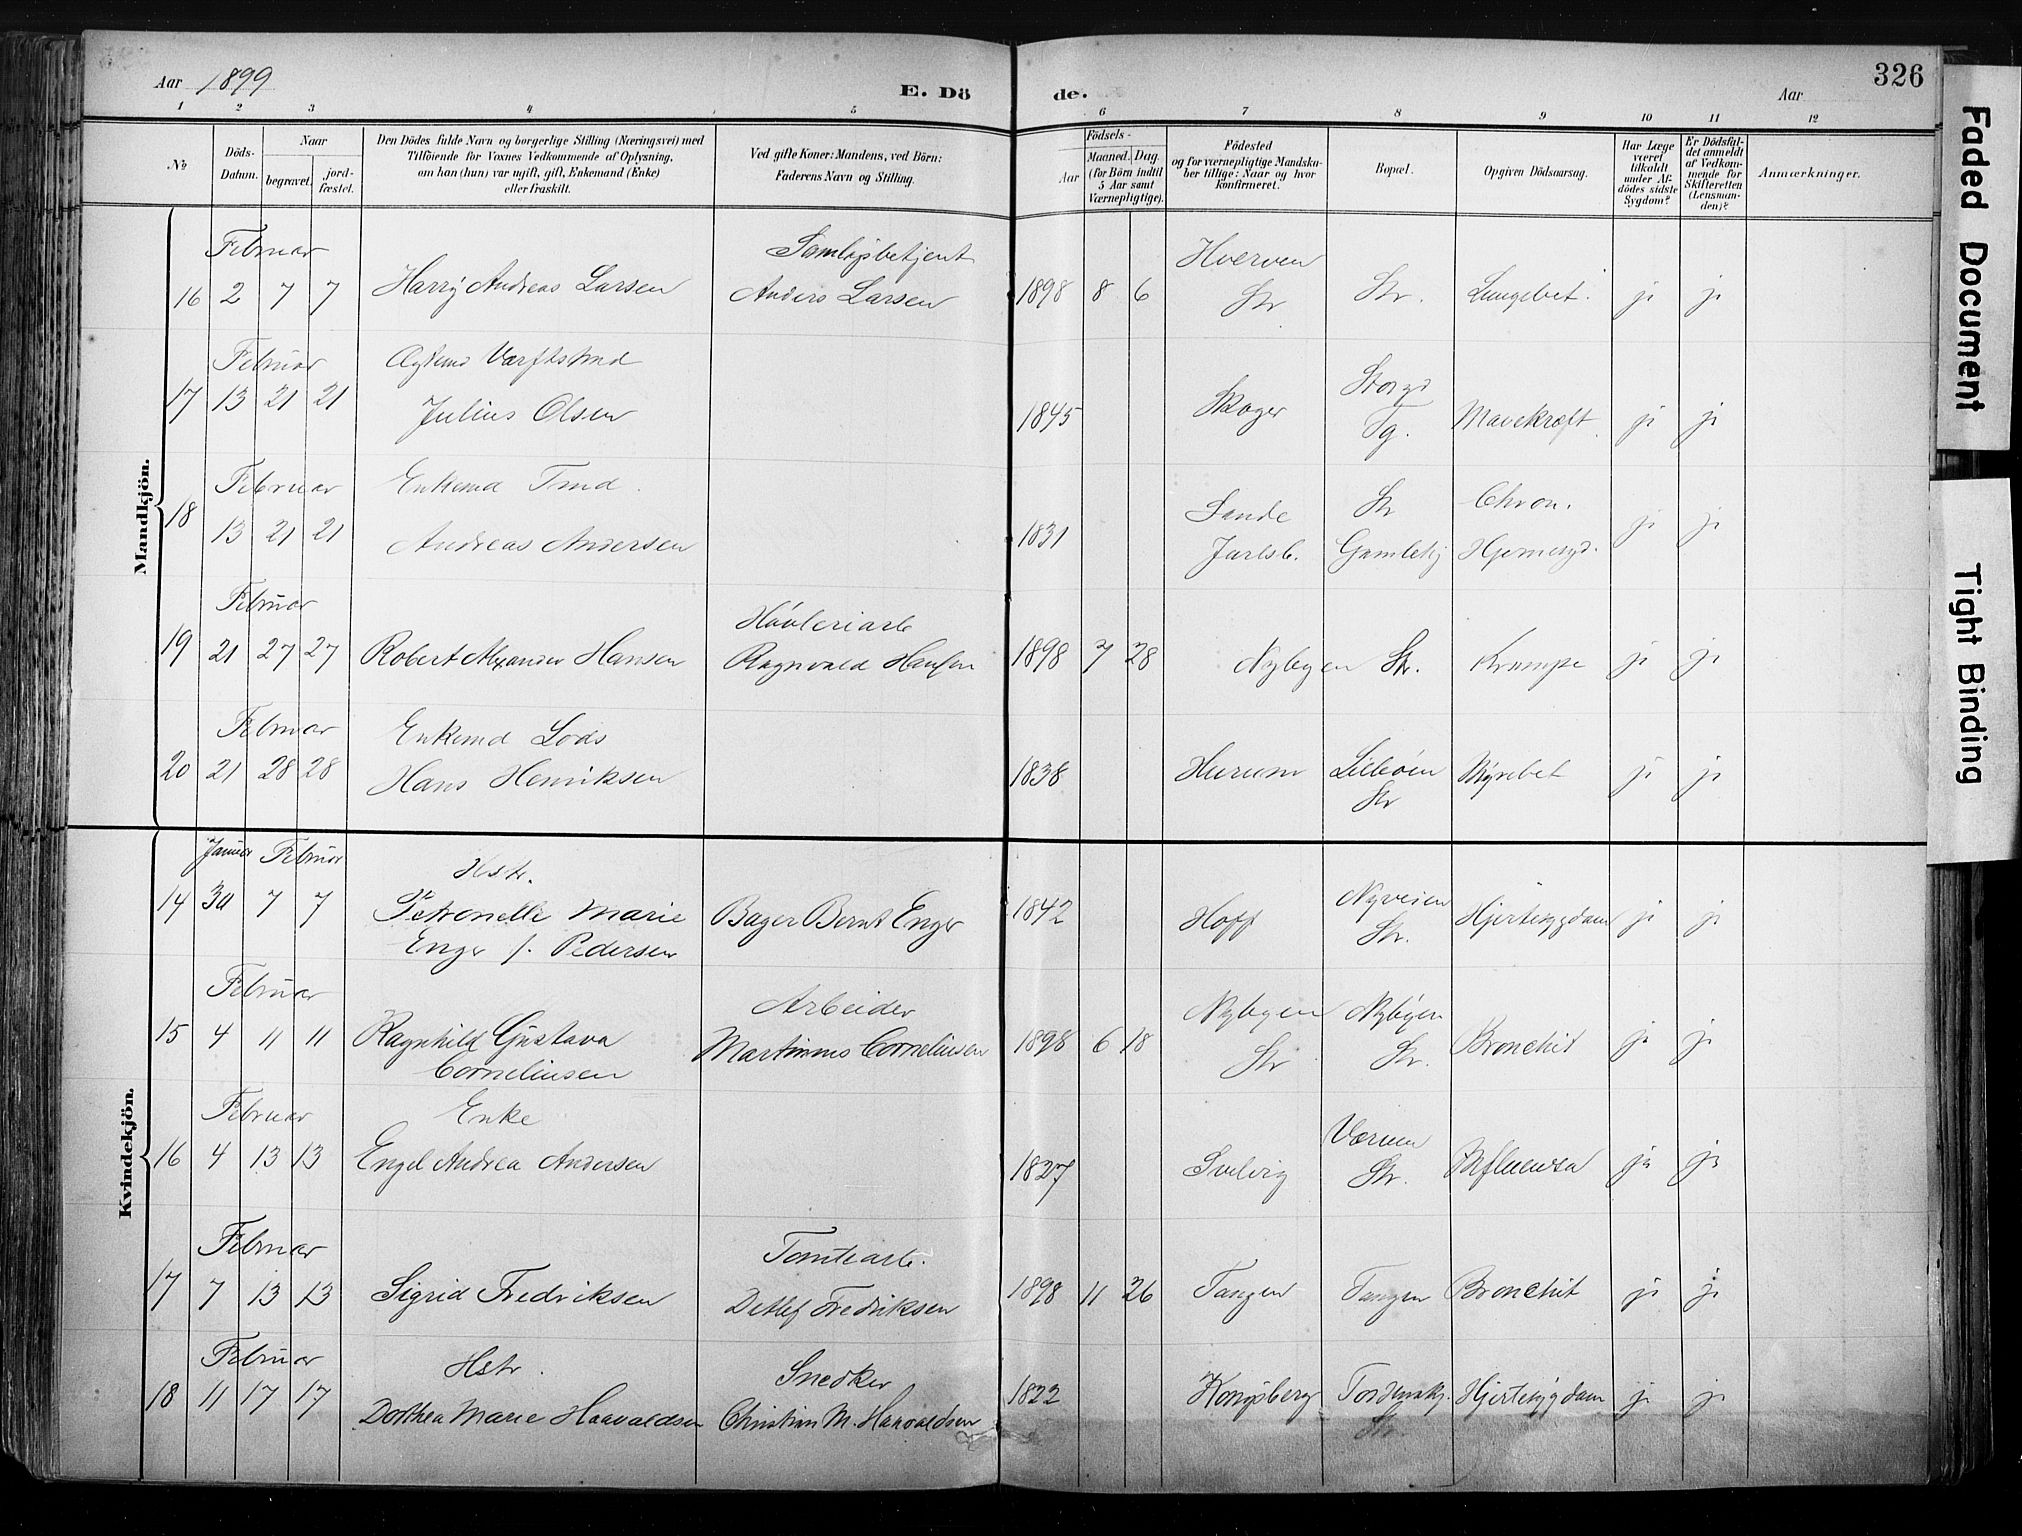 Aar 1899
E. Dö
de.
Aar
326
1 2 3 4 5 6 7 8 9 10 11 12
№
Döds-Datum.
Naar
begravet.
jord-fæstet.
Den Dödes fulde Navn og borgerlige Stilling (Næringsvei) med
Tilföiende for Voxnes Vedkommende af Oplysning,
om han (hun) var ugift, gift, Enkemand (Enke)
eller fraskilt.
Ved gifte Koner: Mandens, ved Börn:
Faderens Navn og Stilling.
Födsels-
Aar
Maaned. Dag.
(for Börn indtil
5 Aar samt
Værnepligtige).
Födested
og for værnepligtige Mandska-
ber tillige: Naar og hvor
konfirmeret.
Bopæl.
Opgiven Dödsaarsag.
Har Læge
været
tilkaldt
under Af-
dödes sidste
Sygdom?
Er Dödsfal-
det anmeldt
af Vedkom-
mende for
Skifteretten
(Lensman-
den)?
Anmærkninger.
Mandkjön.
Februar
16 2 7 7 Harry Andreas Larsen
Anders Larsen
1898 8 6
Hverven
Str
Str.
Lungebet.
ja ja
Februar
17 13 21 21
Julius Olsen
1845
Skoger
Tg.
Mavekræft
ja ja
Februar
Enkemd Tmd.
18 13 21 21 Andreas Andersen
1831
Sande
Jarlsb.
Str
Chron.
ja ja
Februar
19 21 27 27 Robert Alexander Hansen
Høvleriarb
Ragnvald Hansen
1898 7 28
Nybyen Str.
Krampe
ja ja
Februar
Enkemd Lods
20 21 28 28 Hans Henriksen
1838
Hurum
Lilleøen
Str
Nyrebet
ja ja
Kvindekjön.
Januar Februar
Hstr.
14 30 7 7 Petronelle Marie
Enger f. Pedersen
Bager Bernt Enger
1842
Hoff
Nyveien
Str.
Hjertesygdom
ja ja
Februar
15 4 11 11 Ragnhild Gustava
Corneliusen
Arbeider
Martinius Corneliusen
1898 6 18
Nybyen
Str
Nybyen
Str.
Bronchit
ja ja
Februar
Enke
16 4 13 13 Engel Andrea Andersen
1827
Svelvig
Værven
Str.
Influenza
ja ja
Februar
17 7 13 13 Sigrid Fredriksen
Tomtearb.
Detlef Fredriksen
1898 11 26
Tangen
Tangen
Bronchit
ja ja
Februar
Hstr.
18 11 17 17 Dorthea Marie Haavaldsen
Snedker
Christian M. Haavaldsen
1822
Kongsberg
Tordenskj.
Str.
Hjertesygdom
ja ja
Faded Document
Tight Binding